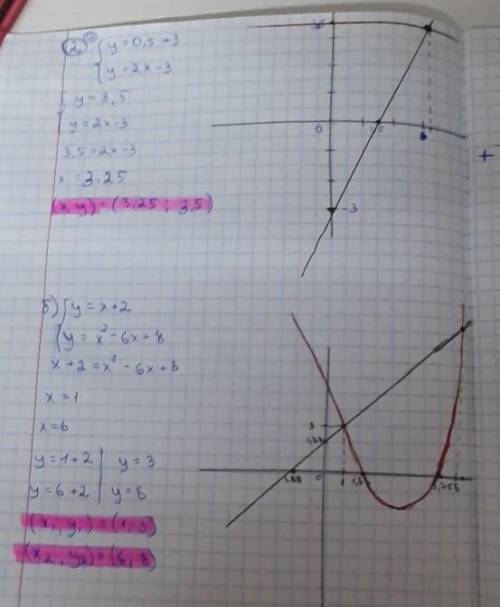 2) a) { y = 0,5 + 3
{ y = 2x - 3
{ y = 3,5
{ y = 2x - 3
3,5 = 2x - 3
x = 3,25
(x, y) = (3,25 ; 3,5)
0
-3
+
б) { y = x + 2
{ y = x² - 6x + 8
x + 2 = x² - 6x + 8
x = 1
x = 6
y = 1 + 2 | y = 3
y = 6 + 2 | y = 8
(x₁, y₁) = (1, 3)
(x₂, y₂) = (6, 8)
3
0
1